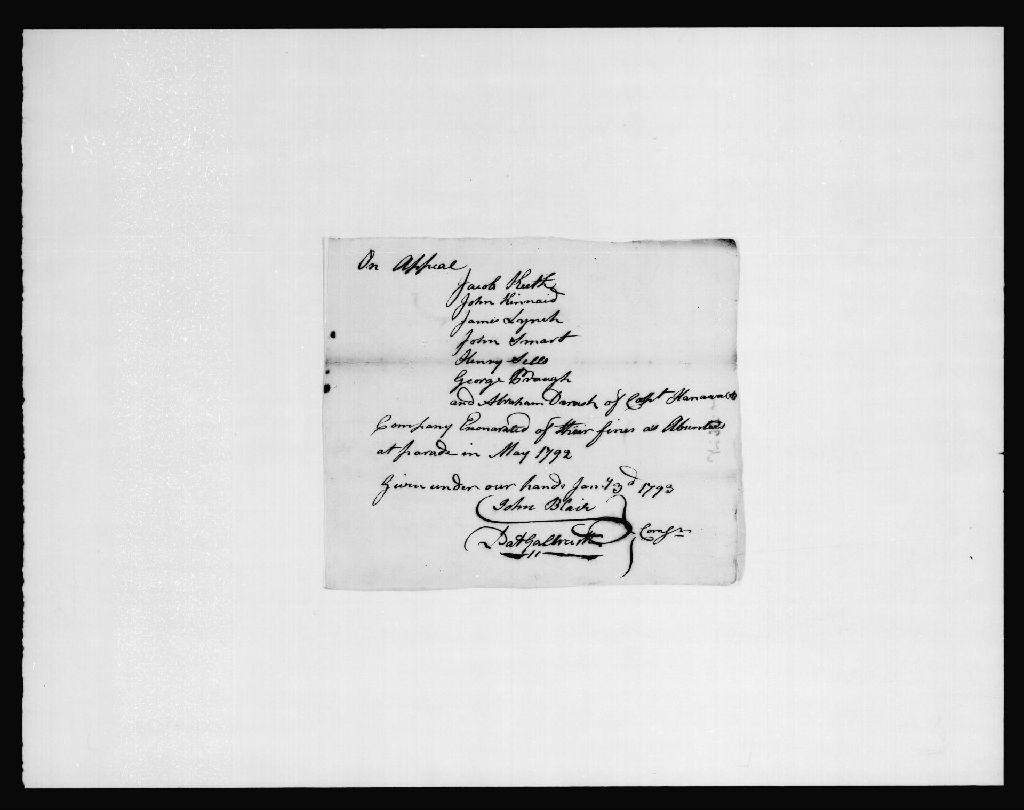 On Appeal
Jacob Ruth
John Kinnaid
James Lynch
John Smart
Henry Sells
George Braugh
and Abraham Darush of Capt Hanawalts
Company Exonarated of their fines as Absentees
at parade in May 1792
Given under our hands Jany 3d 1793
John Blair
Pat Galbraith
Comsrs